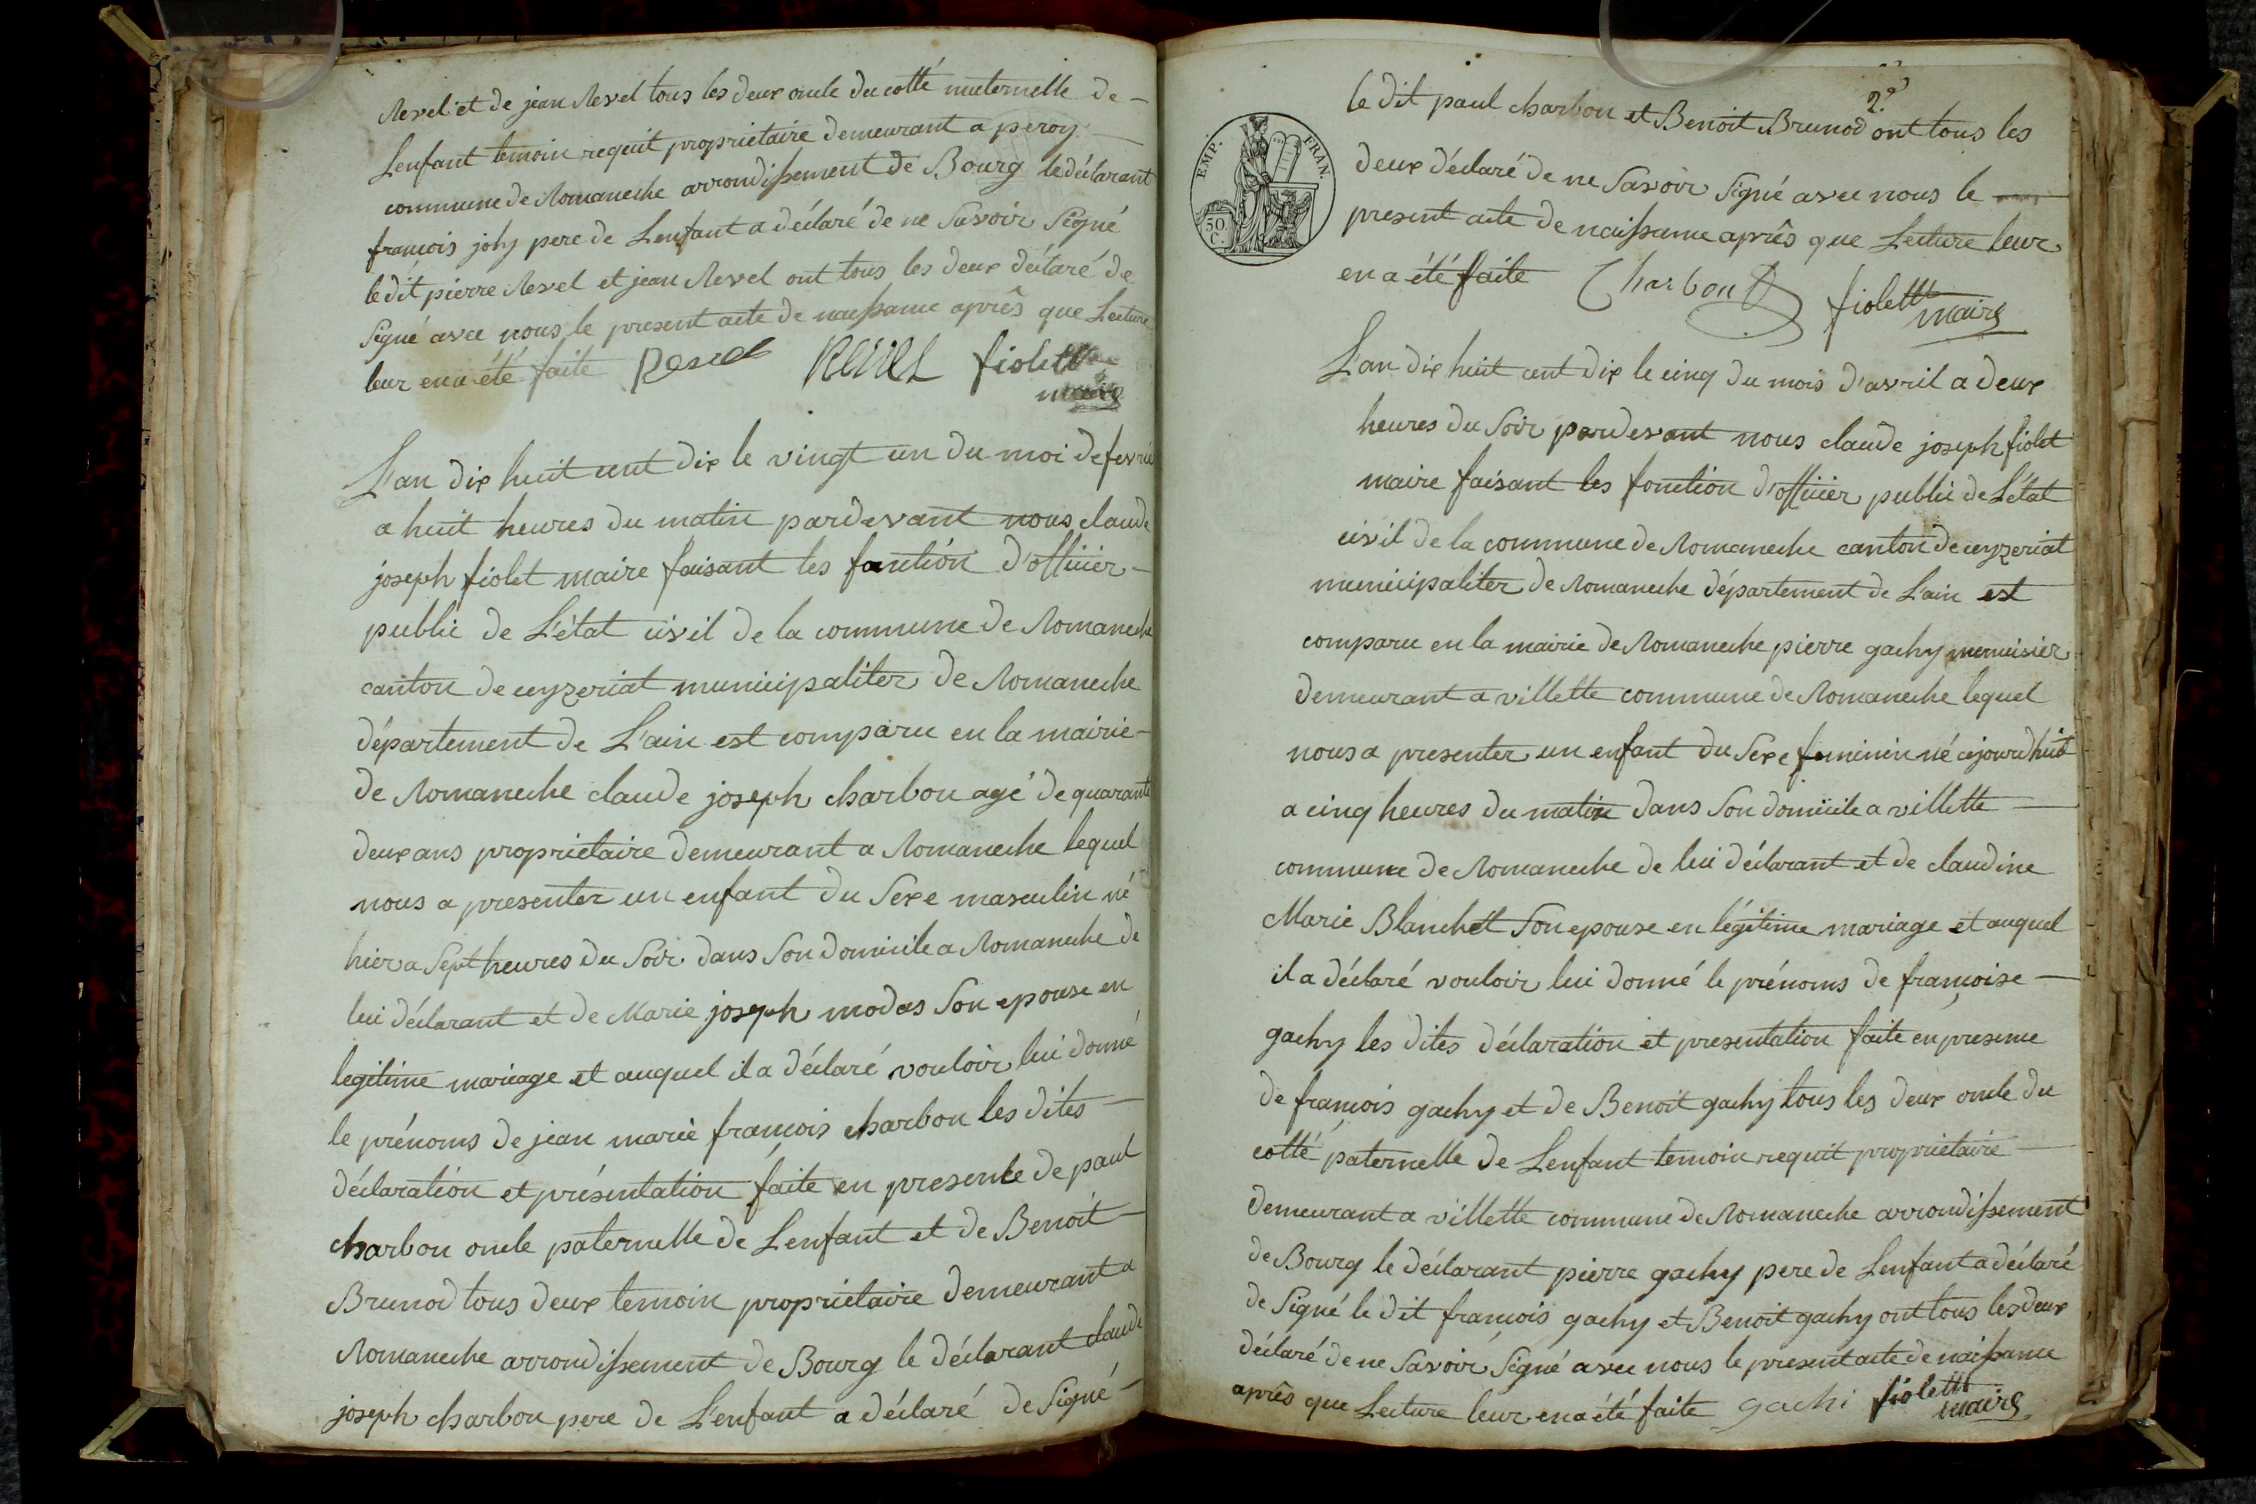 Revel et de jean Revel tous les deux oncle du cotté maternelle de -
Lenfant temoin requit proprietaire demeurant a peroy
commune de Romaneche arrondissement de Bourg le déclarant
francois joly pere de Lenfant a déclaré de ne Savoir Signé
le dit pierre Revel et jean Revel ont tous les deux déclaré de
Signé avec nous le present acte de naissance aprês que Lecture
leur en a été faite Revel REVEL fiolett
maire
L'an dix huit cent dix le vingt un du moi de fevrié
a huit heures du matin pardevant nous claude
joseph fiolet maire faisant les fonction d'officier -
public de L'état civil de la commune de Romaneche
canton de ceyzeriat municipaliter de Romaneche
département de L'ain est comparu en la mairie -
de Romaneche claude joseph charbon agé de quarante
deux ans proprietaire demeurant a Romaneche lequel
nous a presenter un enfant du Sexe masculin né
hier a Sept heures du Soir dans Son domicile a Romaneche de
lui déclarant et de Marie joseph modas Son epouse en
legitime mariage et auquel il a déclaré vouloir lui donné
le prénoms de jean marie francois charbon les dites -
déclaration et présentation faite en presence de paul
charbon oncle paternelle de Lenfant et de Benoit -
Brunod tous deux temoin proprietaire demeurant a
Romaneche arrondissement de Bourg le déclarant claude
joseph charbon pere de L'enfant a déclaré de Signé -
2.e
EMP. FRAN.
50
C.
le dit paul charbon et Benoit Brunod ont tous les
deux déclaré de ne Savoir Signé avec nous le
present acte de naissance aprês que Lecture leur
en a été faite Charbon fiolett
maire
L'an dix huit cent dix le cinq du mois d'avril a deux
heures du Soir pardevant nous claude joseph fiolet
maire faisant les fonction d'officier public de L'état
civil de la commune de Romaneche canton de ceyzeriat
municipaliter de Romaneche département de L'ain est
comparu en la mairie de Romaneche pierre gachy menuisier
demeurant a villette commune de Romaneche lequel
nous a presenter un enfant du Sexe feminin né cejourd'huit
a cinq heures du matin dans Son domicile a villette -
commune de Romaneche de lui déclarant et de claudine
Marie Blanchet Son epouse en légitime mariage et auquel
il a déclaré vouloir lui donné le prénoms de francoise -
gachy les dites déclaration et presentation faite en presence
de francois gachy et de Benoit gachy tous les deux oncle du
cotté paternelle de Lenfant temoin requit proprietaire -
demeurant a villette commune de Romaneche arrondissement
de Bourg le déclarant pierre gachy pere de Lenfant a déclaré
de Signé le dit francois gachy et Benoit gachy ont tous les deux
déclaré de ne Savoir Signé avec nous le present acte de naissance
aprês que Lecture leur en a été faite gachi fiolett
maire